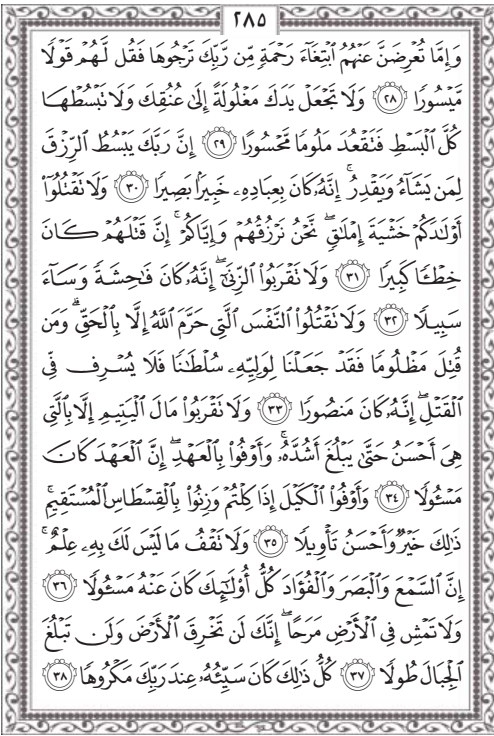 ٢٨٥
وَإِمَّا تُعْرِضَنَّ عَنْهُمُ ٱبْتِغَآءَ رَحْمَةٍ مِّن رَّبِّكَ تَرْجُوهَا فَقُل لَّهُمْ قَوْلًا
مَّيْسُورًا ٢٨ وَلَا تَجْعَلْ يَدَكَ مَغْلُولَةً إِلَىٰ عُنُقِكَ وَلَا تَبْسُطْهَا
كُلَّ ٱلْبَسْطِ فَتَقْعُدَ مَلُومًا مَّحْسُورًا ٢٩ إِنَّ رَبَّكَ يَبْسُطُ ٱلرِّزْقَ
لِمَن يَشَآءُ وَيَقْدِرُ ۚ إِنَّهُۥ كَانَ بِعِبَادِهِۦ خَبِيرًۢا بَصِيرًا ٣٠ وَلَا تَقْتُلُوٓا۟
أَوْلَٰدَكُمْ خَشْيَةَ إِمْلَٰقٍ ۖ نَّحْنُ نَرْزُقُهُمْ وَإِيَّاكُمْ ۚ إِنَّ قَتْلَهُمْ كَانَ
خِطْـًٔا كَبِيرًا ٣١ وَلَا تَقْرَبُوا۟ ٱلزِّنَىٰٓ ۖ إِنَّهُۥ كَانَ فَٰحِشَةً وَسَآءَ
سَبِيلًا ٣٢ وَلَا تَقْتُلُوا۟ ٱلنَّفْسَ ٱلَّتِى حَرَّمَ ٱللَّهُ إِلَّا بِٱلْحَقِّ ۗ وَمَن
قُتِلَ مَظْلُومًا فَقَدْ جَعَلْنَا لِوَلِيِّهِۦ سُلْطَٰنًا فَلَا يُسْرِف فِّى
ٱلْقَتْلِ ۖ إِنَّهُۥ كَانَ مَنصُورًا ٣٣ وَلَا تَقْرَبُوا۟ مَالَ ٱلْيَتِيمِ إِلَّا بِٱلَّتِى
هِىَ أَحْسَنُ حَتَّىٰ يَبْلُغَ أَشُدَّهُۥ ۚ وَأَوْفُوا۟ بِٱلْعَهْدِ ۖ إِنَّ ٱلْعَهْدَ كَانَ
مَسْـُٔولًا ٣٤ وَأَوْفُوا۟ ٱلْكَيْلَ إِذَا كِلْتُمْ وَزِنُوا۟ بِٱلْقِسْطَاسِ ٱلْمُسْتَقِيمِ ۚ
ذَٰلِكَ خَيْرٌ وَأَحْسَنُ تَأْوِيلًا ٣٥ وَلَا تَقْفُ مَا لَيْسَ لَكَ بِهِۦ عِلْمٌ ۚ
إِنَّ ٱلسَّمْعَ وَٱلْبَصَرَ وَٱلْفُؤَادَ كُلُّ أُو۟لَٰٓئِكَ كَانَ عَنْهُ مَسْـُٔولًا ٣٦
وَلَا تَمْشِ فِى ٱلْأَرْضِ مَرَحًا ۖ إِنَّكَ لَن تَخْرِقَ ٱلْأَرْضَ وَلَن تَبْلُغَ
ٱلْجِبَالَ طُولًا ٣٧ كُلُّ ذَٰلِكَ كَانَ سَيِّئُهُۥ عِندَ رَبِّكَ مَكْرُوهًا ٣٨